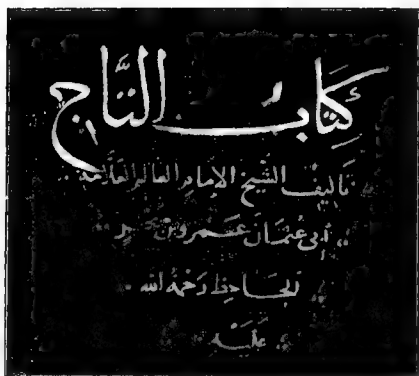 كتاب التاج
تأليف الشيخ الإمام العالم العلامة
أبى عثمان عمرو بن بحر
الجاحظ رحمة الله
عليه